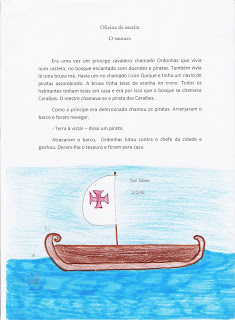 Oficina de escrita
O tesouro
Era uma vez um príncipe cavaleiro chamado Ordonhas que vivia
num castelo, no bosque encantado com duendes e piratas. Também vivia
lá uma bruxa má. Havia um rio chamado Lizan Quique e tinha um navio de
piratas assombrado. A bruxa tinha teias de aranha no trono. Todos os
habitantes tinham teias em casa e era por isso que o bosque se chamava
Caraíbas. O mestre chamava-se o pirata das Caraíbas.
Como o príncipe era determinado chamou os piratas. Arranjaram o
barco e foram navegar.
- Terra à vista! – disse um pirata.
Atracaram o barco, Ordonhas lutou contra o chefe da cidade e
ganhou. Deram-lhe o tesouro e foram para casa.
José